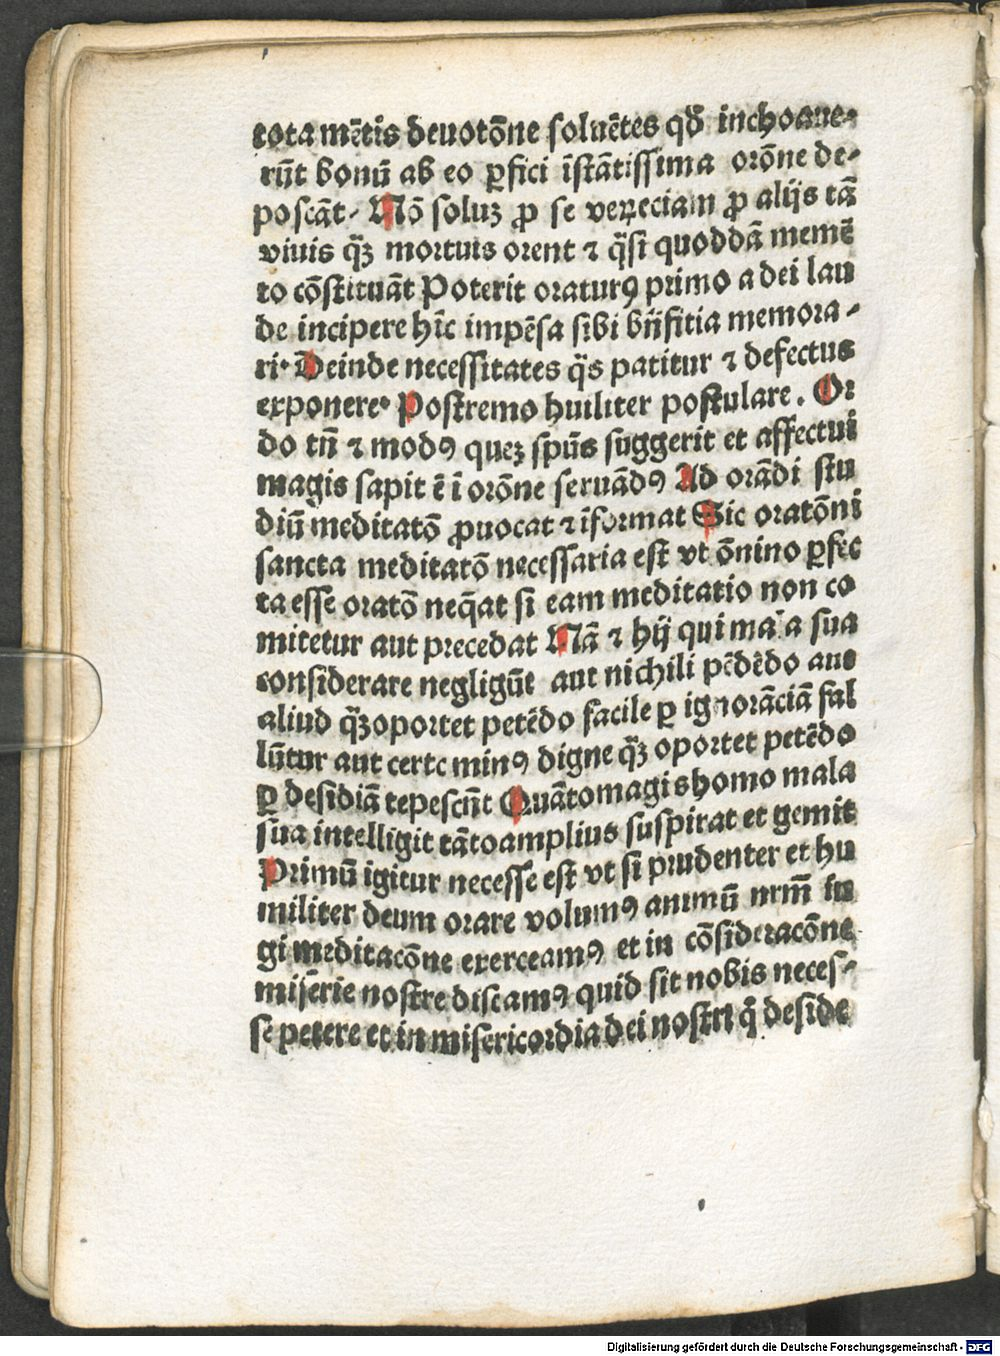 tota mẽtis deuotõne soluẽtes qđ inchoaue-
rũt bonũ ab eo ꝑfici ĩstãtissima orõne de-
poscãt. Nõ soluꝫ ꝓ se veꝝeciam ꝓ alijs tã
viuis q̃ꝫ mortuis orent ⁊ q̃si quoddã memẽ
to cõstituãt Poterit oraturꝰ primo a dei lau
de incipere hĩc impẽsa sibi bñfitia memora-
ri. Deinde necessitates q̃s patitur ⁊ defectus
exponere. Postremo huiliter postulare. Or
do tñ ⁊ modꝰ queꝫ spũs suggerit et affectui
magis sapit ẽ ĩ orõne seruãdꝰ Ad orãdi stu
diũ meditatõ ꝓuocat ⁊ ĩformat Sic oratõni
sancta meditatõ necessaria est vt õnino ꝑfec
ta esse oratõ neq̃at si eam meditatio non co
mitetur aut precedat Nã ⁊ hij qui mala sua
considerare negligũt aut nichili pẽdẽdo aut
aliud q̃ꝫ oportet petẽdo facile ꝑ ignorãciã fal
lũtur aut certe minꝰ digne q̃ꝫ oportet petẽdo
ꝑ desidiã tepescũt Quãto magis homo mala
sua intelligit tãto amplius suspirat et gemit
Primũ igitur necesse est vt si prudenter et hu
militer deum orare volumꝰ animũ nrm̃ iu
gi meditacõne exerceamꝰ et in cõsideracõne
miserie nostre discamꝰ quid sit nobis neces-
se petere et in misericordia dei nostri q̃ deside
Digitalisierung gefördert durch die Deutsche Forschungsgemeinschaft - DFG